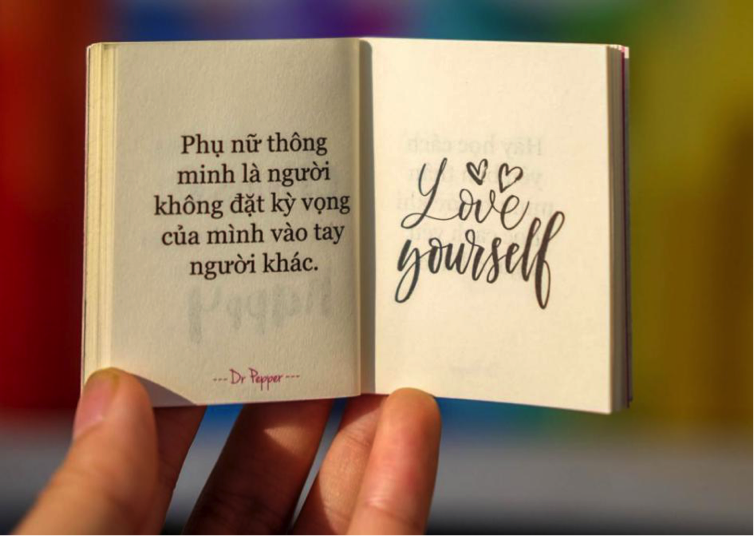 Phụ nữ thông
minh là người
không đặt kỳ vọng
của mình vào tay
người khác.
--- Dr Pepper ---
Love
yourself